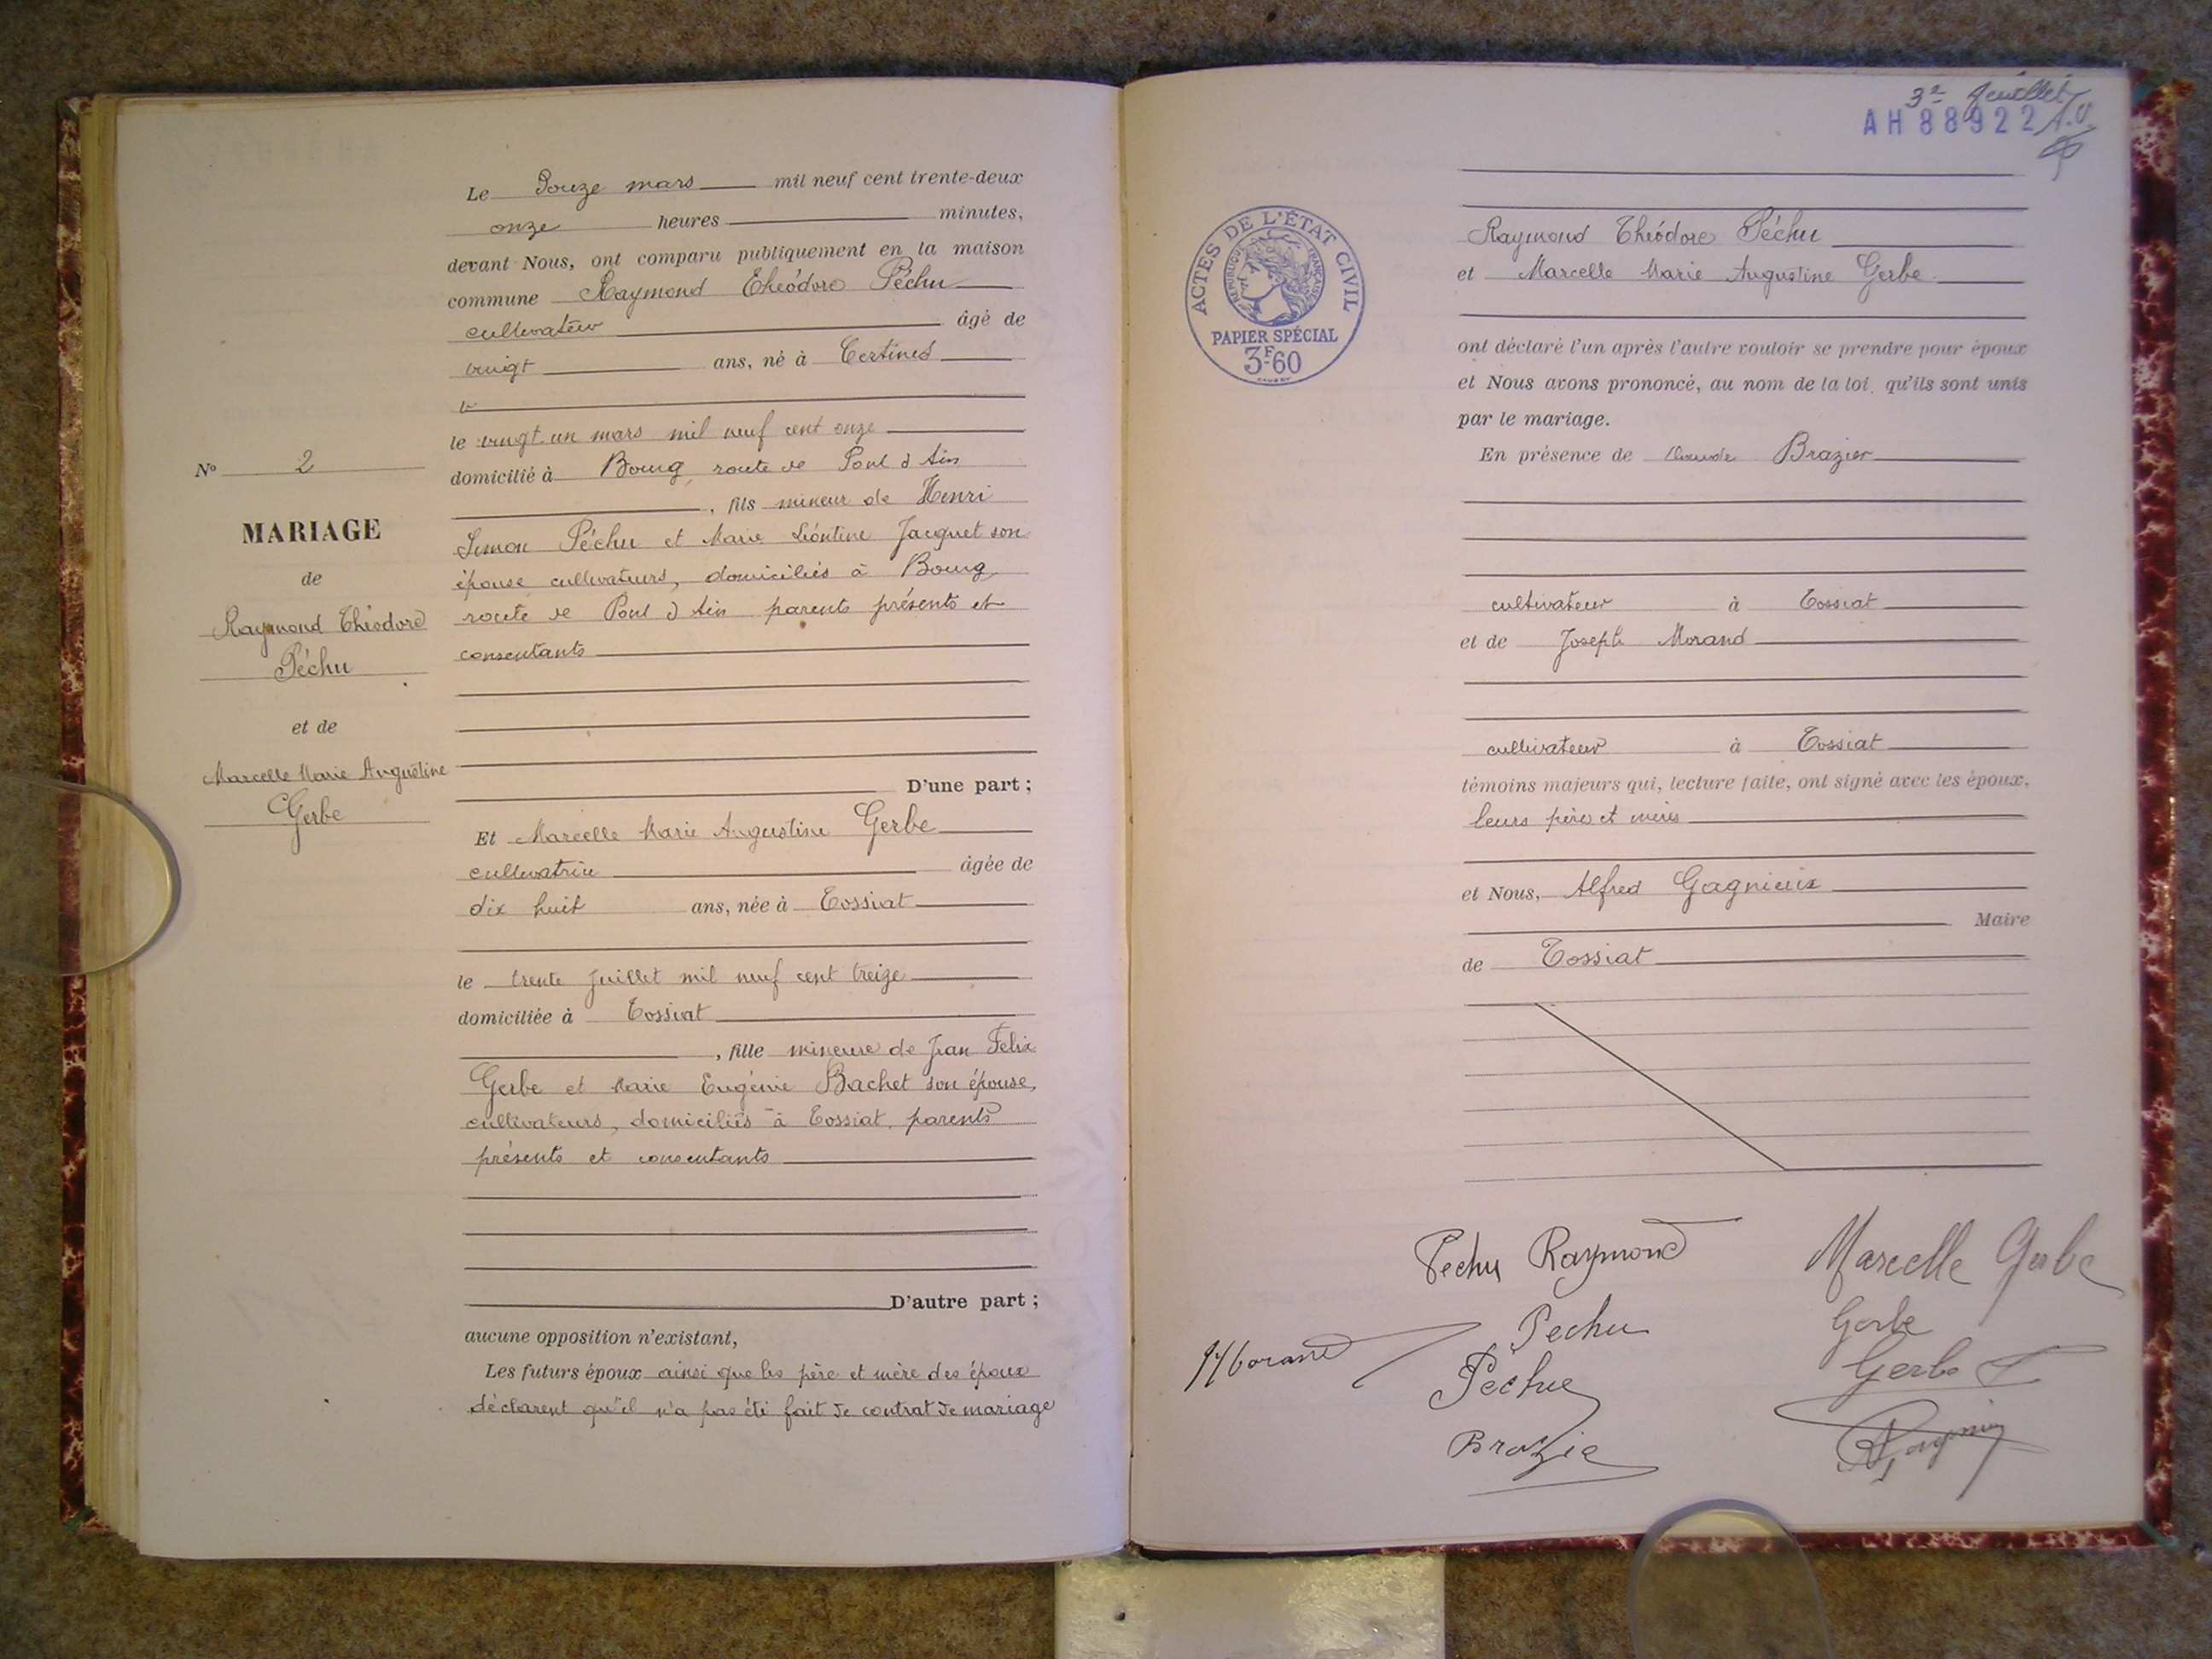 Le Douze mars mil neuf cent trente-deux
onze heures minutes,
devant Nous, ont comparu publiquement en la maison
commune Raymond Théodore Péchu
cultivateur âgé de
vingt ans, né à Certines
le vingt un mars mil neuf cent onze
domicilié à Bourg, route de Pont d'Ain
, fils mineur de Henri
Simon Péchu et Marie Léontine Jacquet son
épouse cultivateurs, domiciliés à Bourg
route de Pont d'Ain parents présents et
consentants
D'une part ;
Nº 2
MARIAGE
de
Raymond Théodore
Péchu
et de
Marcelle Marie Augustine
Gerbe
Et Marcelle Marie Augustine Gerbe
cultivatrice âgée de
dix huit ans, née à Tossiat
le trente juillet mil neuf cent treize
domiciliée à Tossiat
, fille mineure de Jean Felix
Gerbe et Marie Eugénie Bachet son épouse,
cultivateurs, domiciliés à Tossiat, parents
présents et consentants
D'autre part ;
aucune opposition n'existant,
Les futurs époux ainsi que les père et mère des époux
déclarent qu'il n'a pas été fait de contrat de mariage
3e feuillet
AH 88922
ACTES DE L'ÉTAT CIVIL
RÉPUBLIQUE FRANÇAISE
PAPIER SPÉCIAL
3F60
Raymond Théodore Péchu
et Marcelle Marie Augustine Gerbe
ont déclaré l'un après l'autre vouloir se prendre pour époux
et Nous avons prononcé, au nom de la loi, qu'ils sont unis
par le mariage.
En présence de Claude Brazier
cultivateur à Tossiat
et de Joseph Morand
cultivateur à Tossiat
témoins majeurs qui, lecture faite, ont signé avec les époux,
leurs père et mères
et Nous, Alfred Gagnieux
Maire
de Tossiat
Pechu Raymond Marcelle Gerbe
Pechu Gerbe
J Morand Péchu Gerbe
Brazie